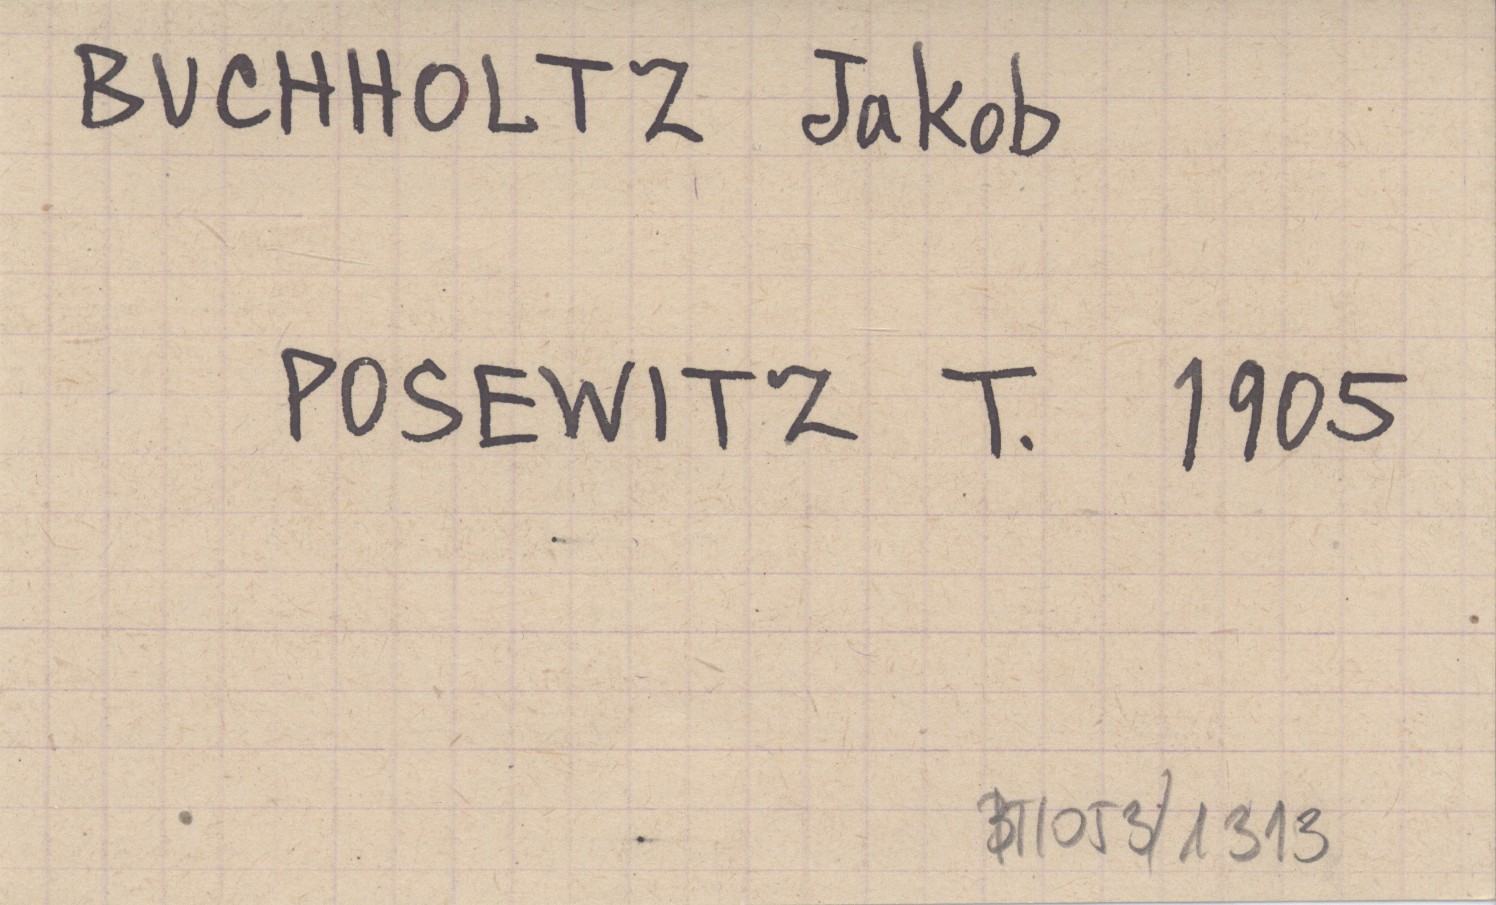 BUCHHOLTZ Jakob
POSEWITZ T. 1905
BT1053/1313